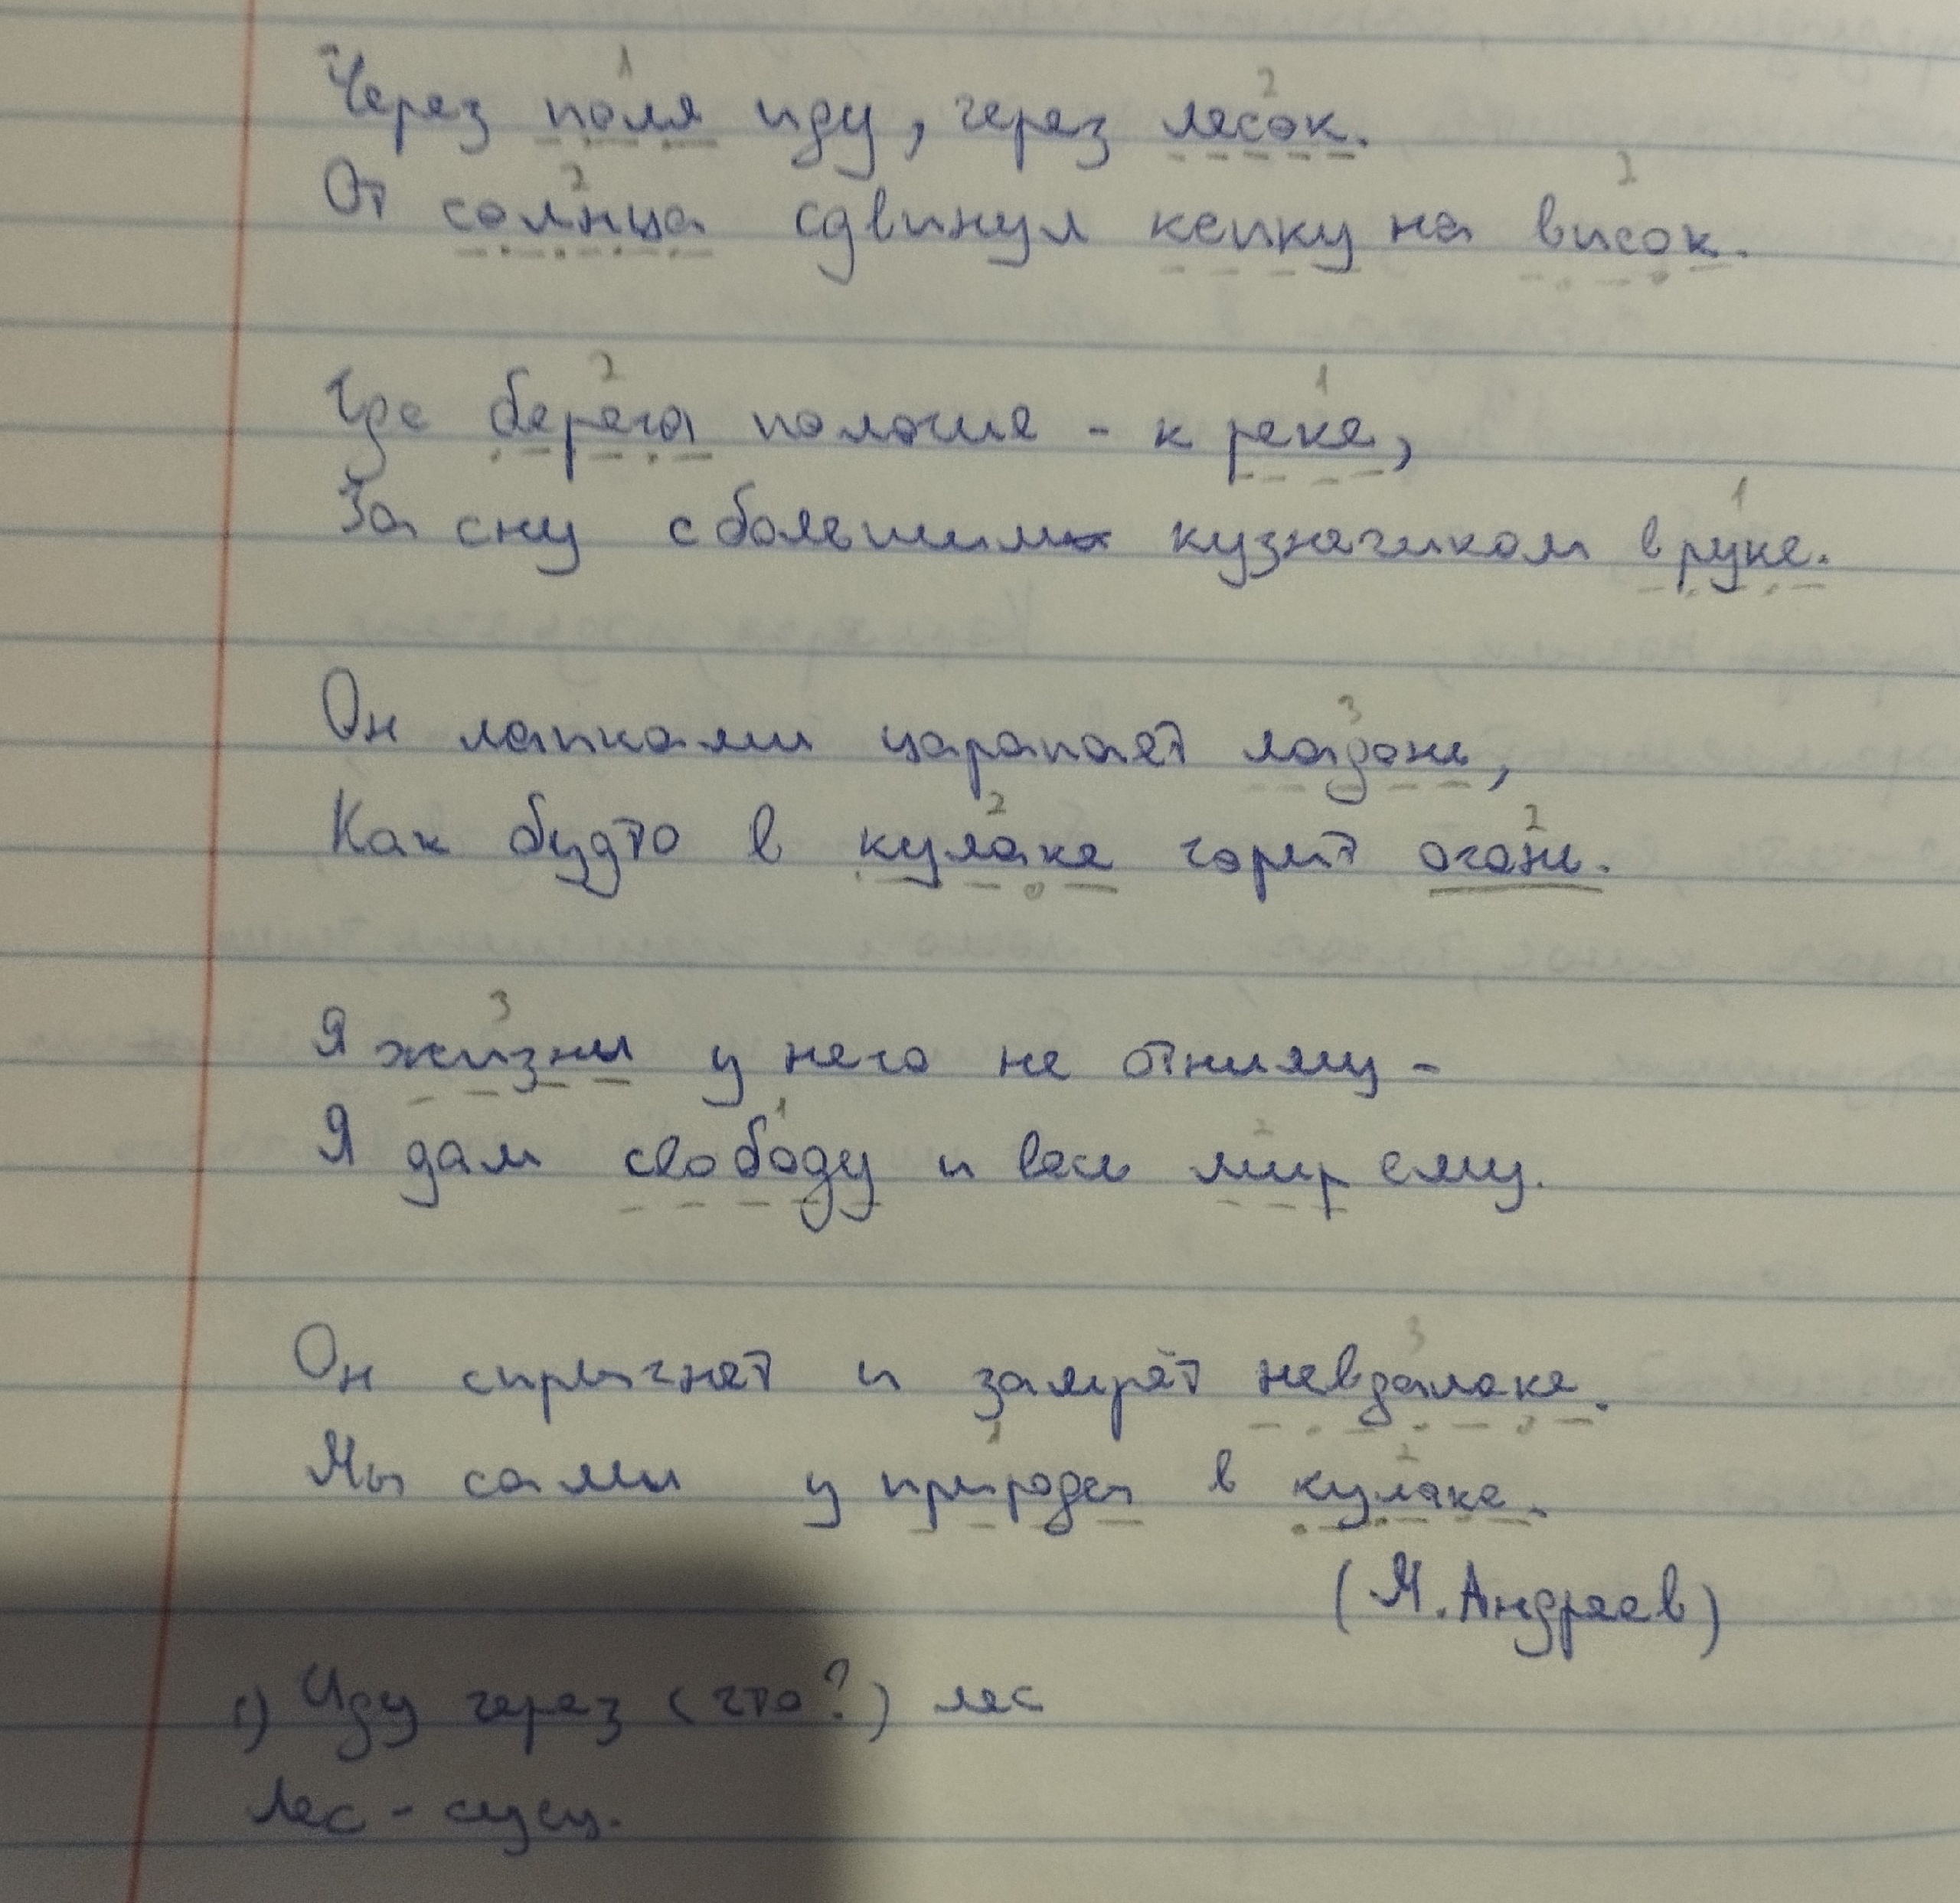 Через поля иду, через лесок.
От солнца сдвинул кепку на висок.
Где берега пологие - к реке,
Засну с большим кузнечиком в руке.
Он лапками царапает ладонь,
Как будто в кулаке горит огонь.
Я жизни у него не отниму -
Я дам свободу и весь мир ему.
Он спрыгнет и замрёт невдалеке.
Мы сами у природы в кулаке.
(М. Андреев)
1) Иду через (что?) лес
Лес - сущ.